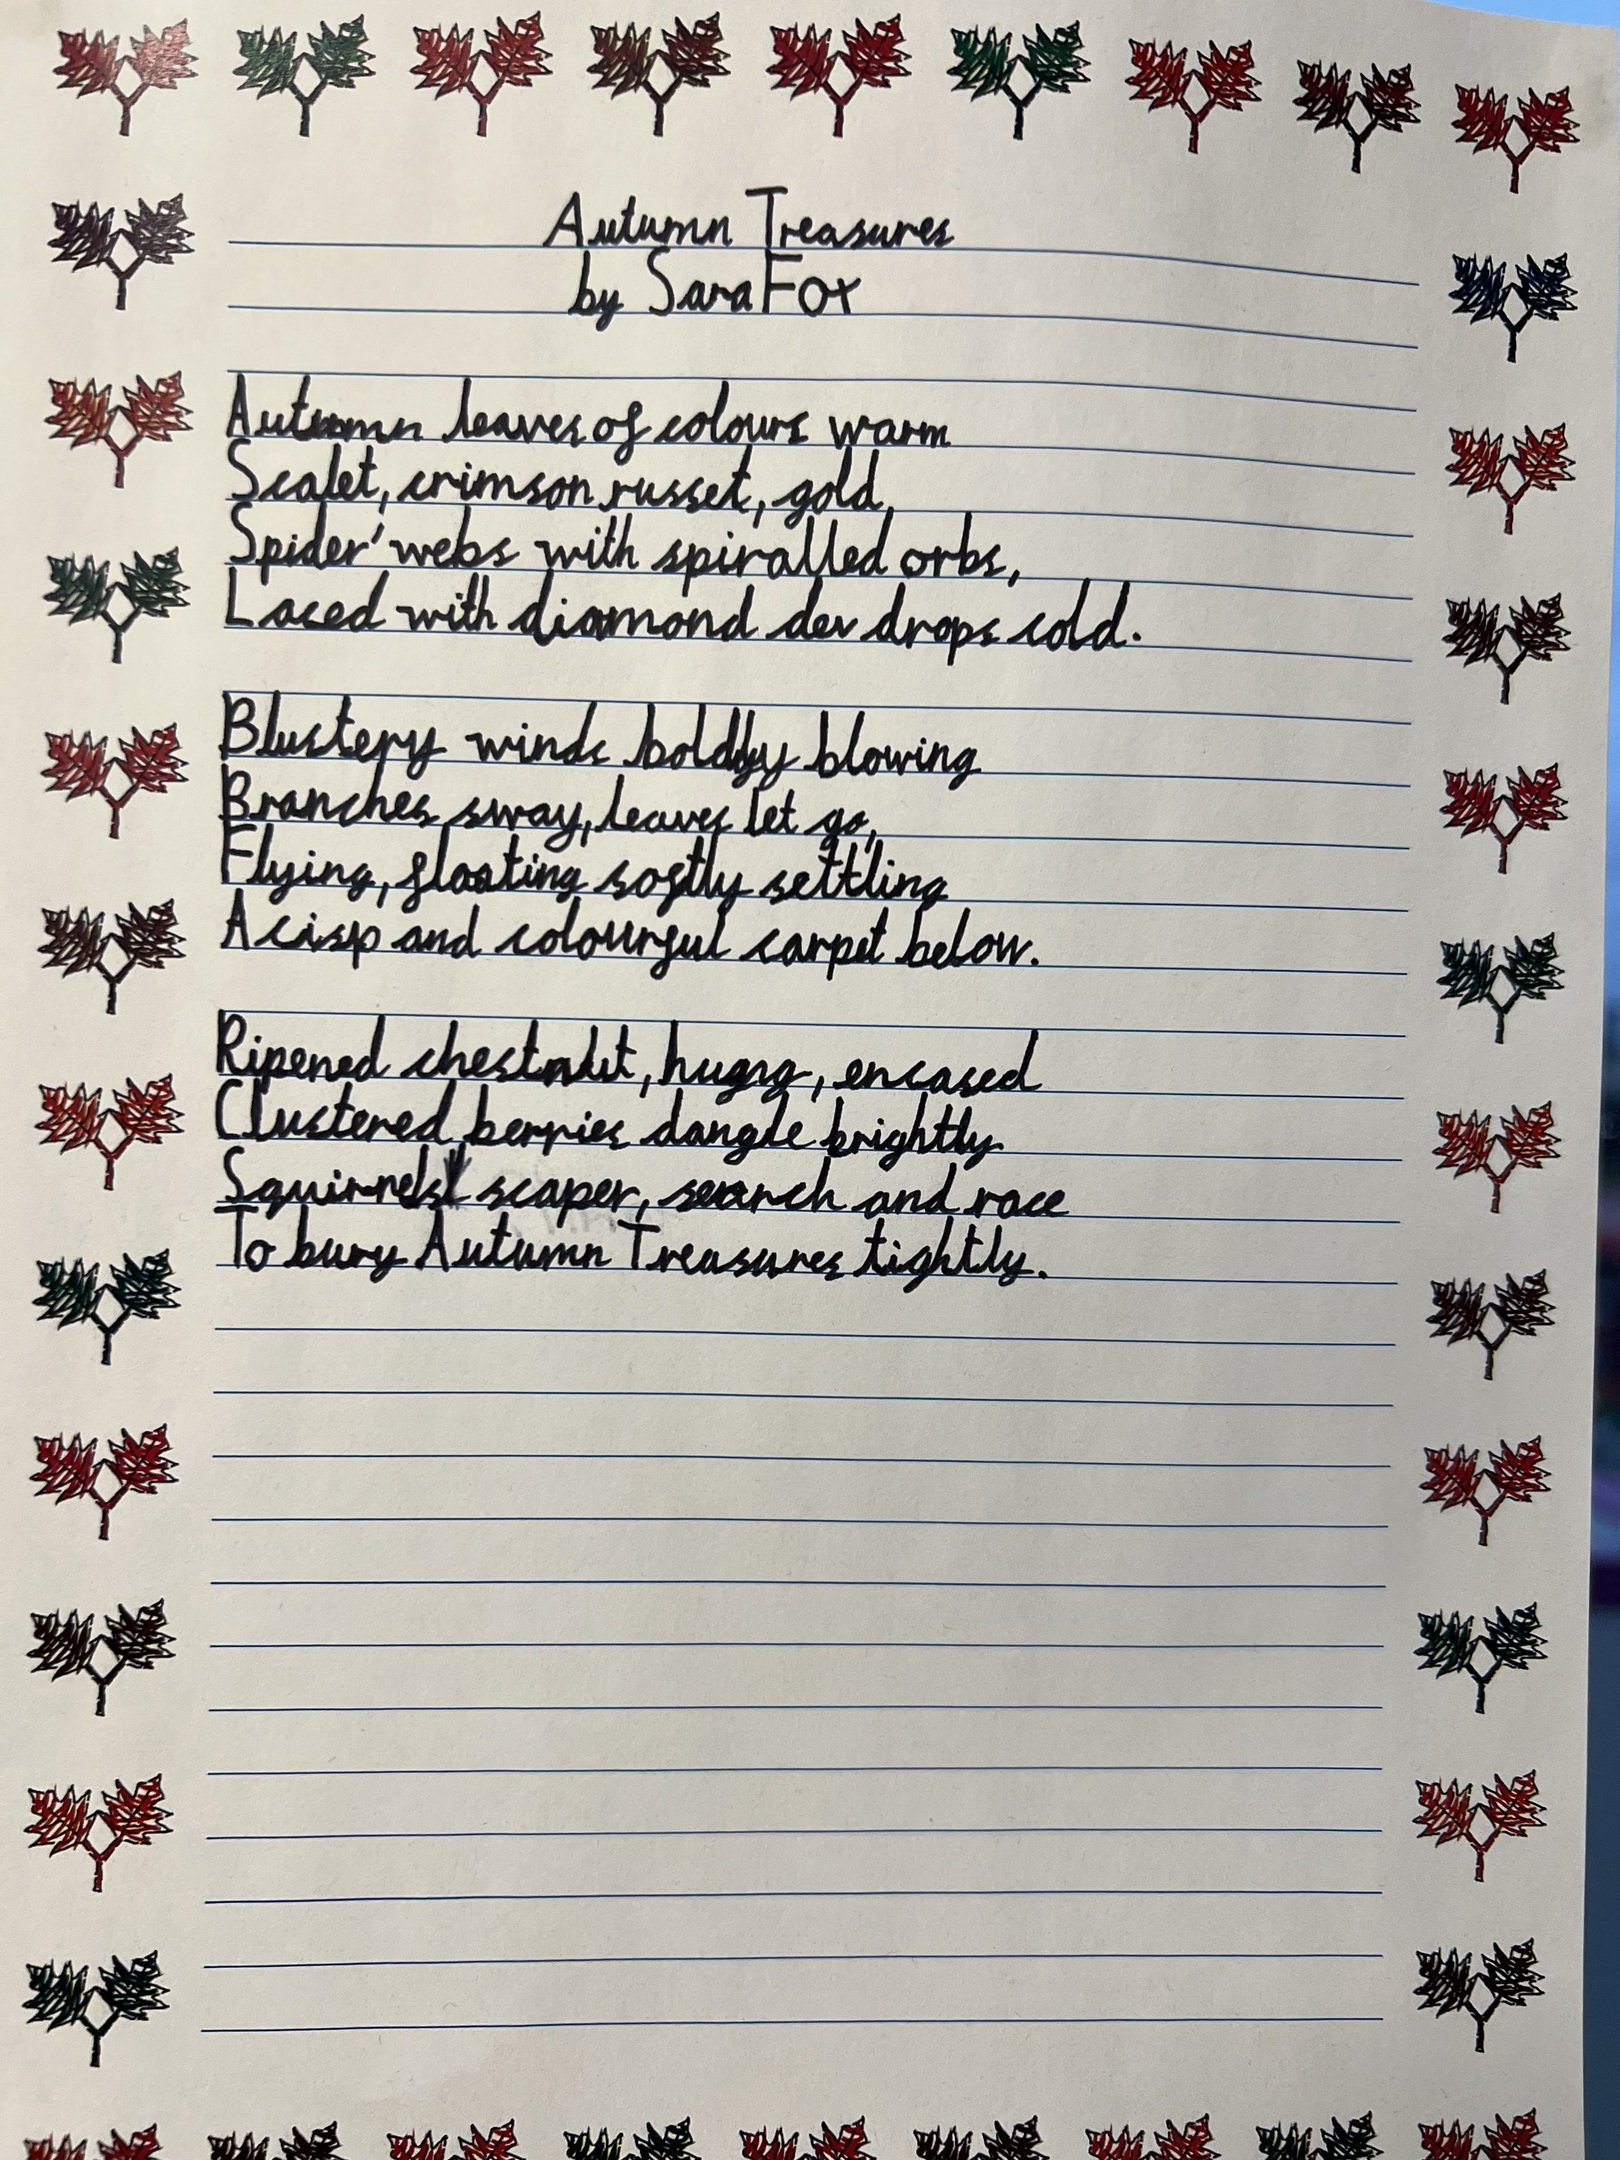 Autumn Treasures
by Sara Fox
Autumn leaves of colours warm
Scalet, crimson russet, gold,
Spider' webs with spiralled orbs,
Laced with diamond dew drops cold.
Blustery winds boldly blowing
Branches sway, leaves let go,
Flying, floating softly settling
A cisp and colourful carpet below.
Ripened chestnut, hugng, encased
Clustered berries dangle brightly
Squirrels scaper, search and race
To bury Autumn Treasures tightly.